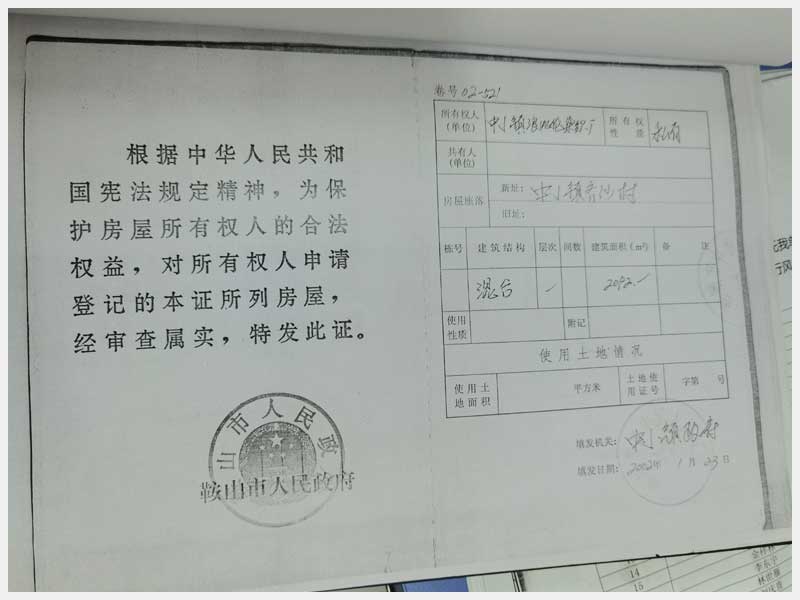 根据中华人民共和
国宪法规定精神，为保
护房屋所有权人的合法
权益，对所有权人申请
登记的本证所列房屋，
经审查属实，特发此证。
山市人民政
鞍山市人民政府
卷号 02-521
所有权人
(单位)
所有权
性 质
私有
共有人
(单位)
房屋座落
新址：
旧址：
栋号 建筑结构 层次 间数 建筑面积(m²) 备 注
混合 一 2092.—
使用
性质
附记
使用土地情况
使用土
地面积
平方米
土地使
用证号
字第 号
填发机关： 中小镇政府
填发日期： 2002年 1月 23日
14
15
李东宇